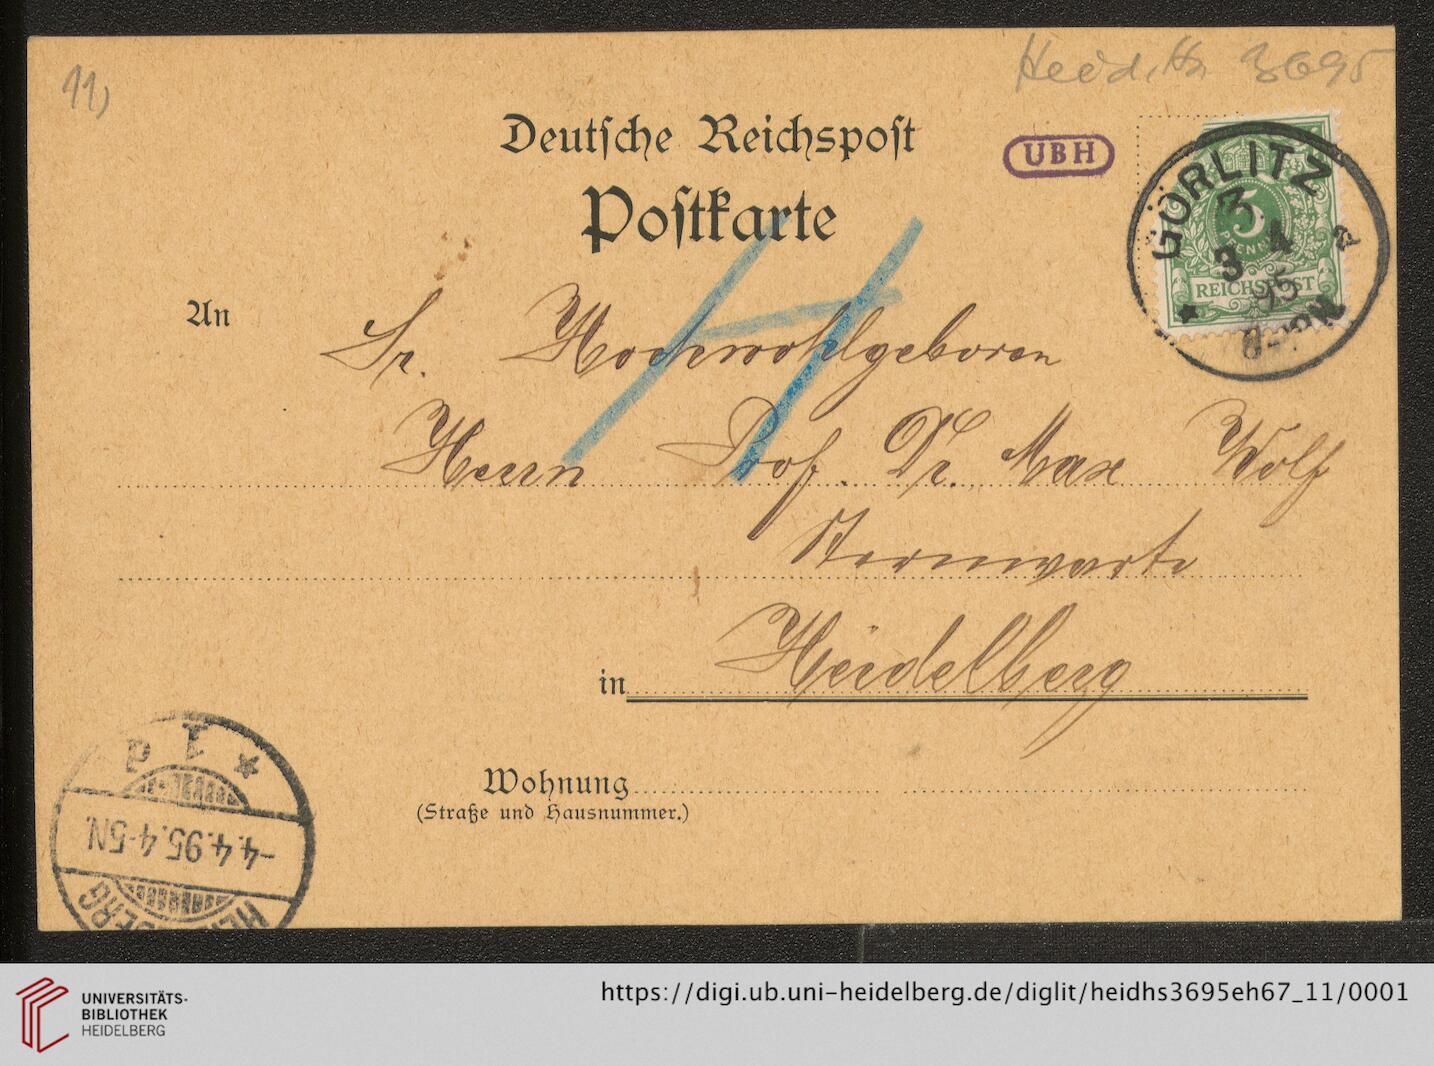 11)
Heid. Hs. 3695
Deutsche Reichspost
UBH
Postkarte
GÖRLITZ
3
3 4
95
8-9N
a
5
PFENNIG
REICHSPOST
An
Sr. Hochwohlgeboren
Herrn Prof. Dr. Max Wolf
Sternwarte
in Heidelberg
Wohnung
(Straße und Hausnummer.)
HEIDELBERG
-4.4.95.4-5N.
* 1 d
UNIVERSITÄTS-
BIBLIOTHEK
HEIDELBERG
https://digi.ub.uni-heidelberg.de/diglit/heidhs3695eh67_11/0001